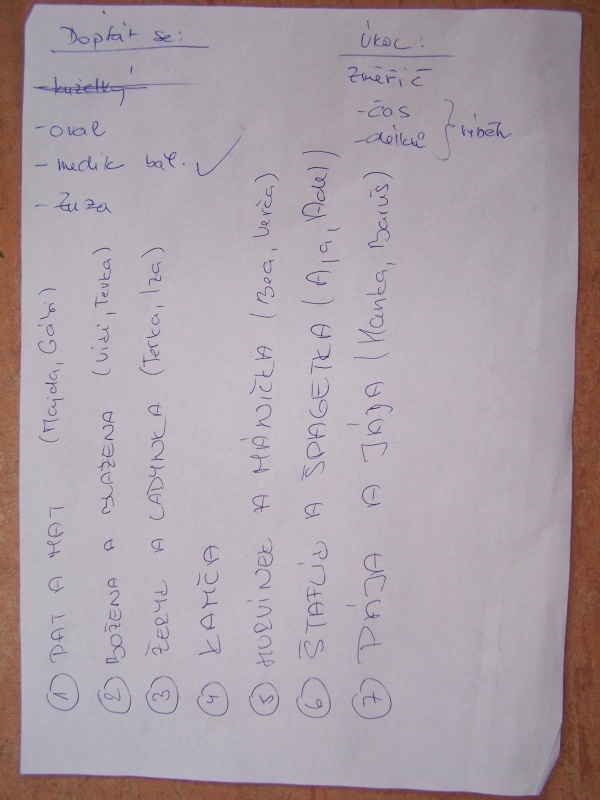 Doptát se:
kuželky
- oval
- medik bal. ✓
- Zuza
Úkol:
Změřit
- čas
- délku
výběh
① PAT A MAT (Majda, Gábi)
② BOŽENA A BLAŽENA (Viki, Terka)
③ ŽERYK A LADYNKA (Terka, Iza)
④ KAMČA
⑤ HURVÍNEK A MÁNIČKA (Bea, Verča)
⑥ ŠTAFLÍK A ŠPAGETKA (Aja, Adel)
⑦ PÁJA A JÁJA (Hanka, Baruš)